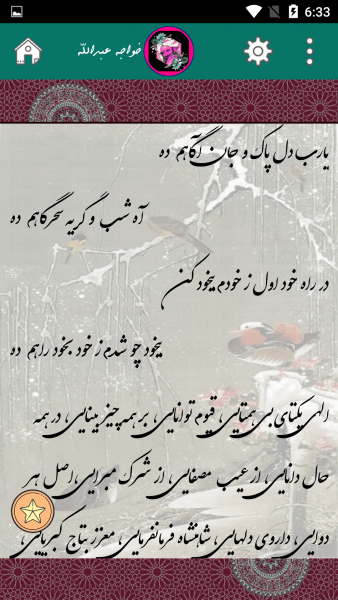 6:33
خواجه عبدالله
یارب دل پاک و جان آگاهم ده
آه شب و گریه سحرگاهم ده
در راه خود اول ز خودم بیخود کن
بیخود چو شدم ز خود بخود راهم ده
الهی یکتای بی همتایی، قیوم توانایی، بر همه چیز بینایی، در همه
حال دانایی، از عیب مصفایی، از شرک مبرایی، اصل هر
دوایی، داروی دلهایی، شاهنشاه فرمانفرمایی، معزز بتاج کبریایی،